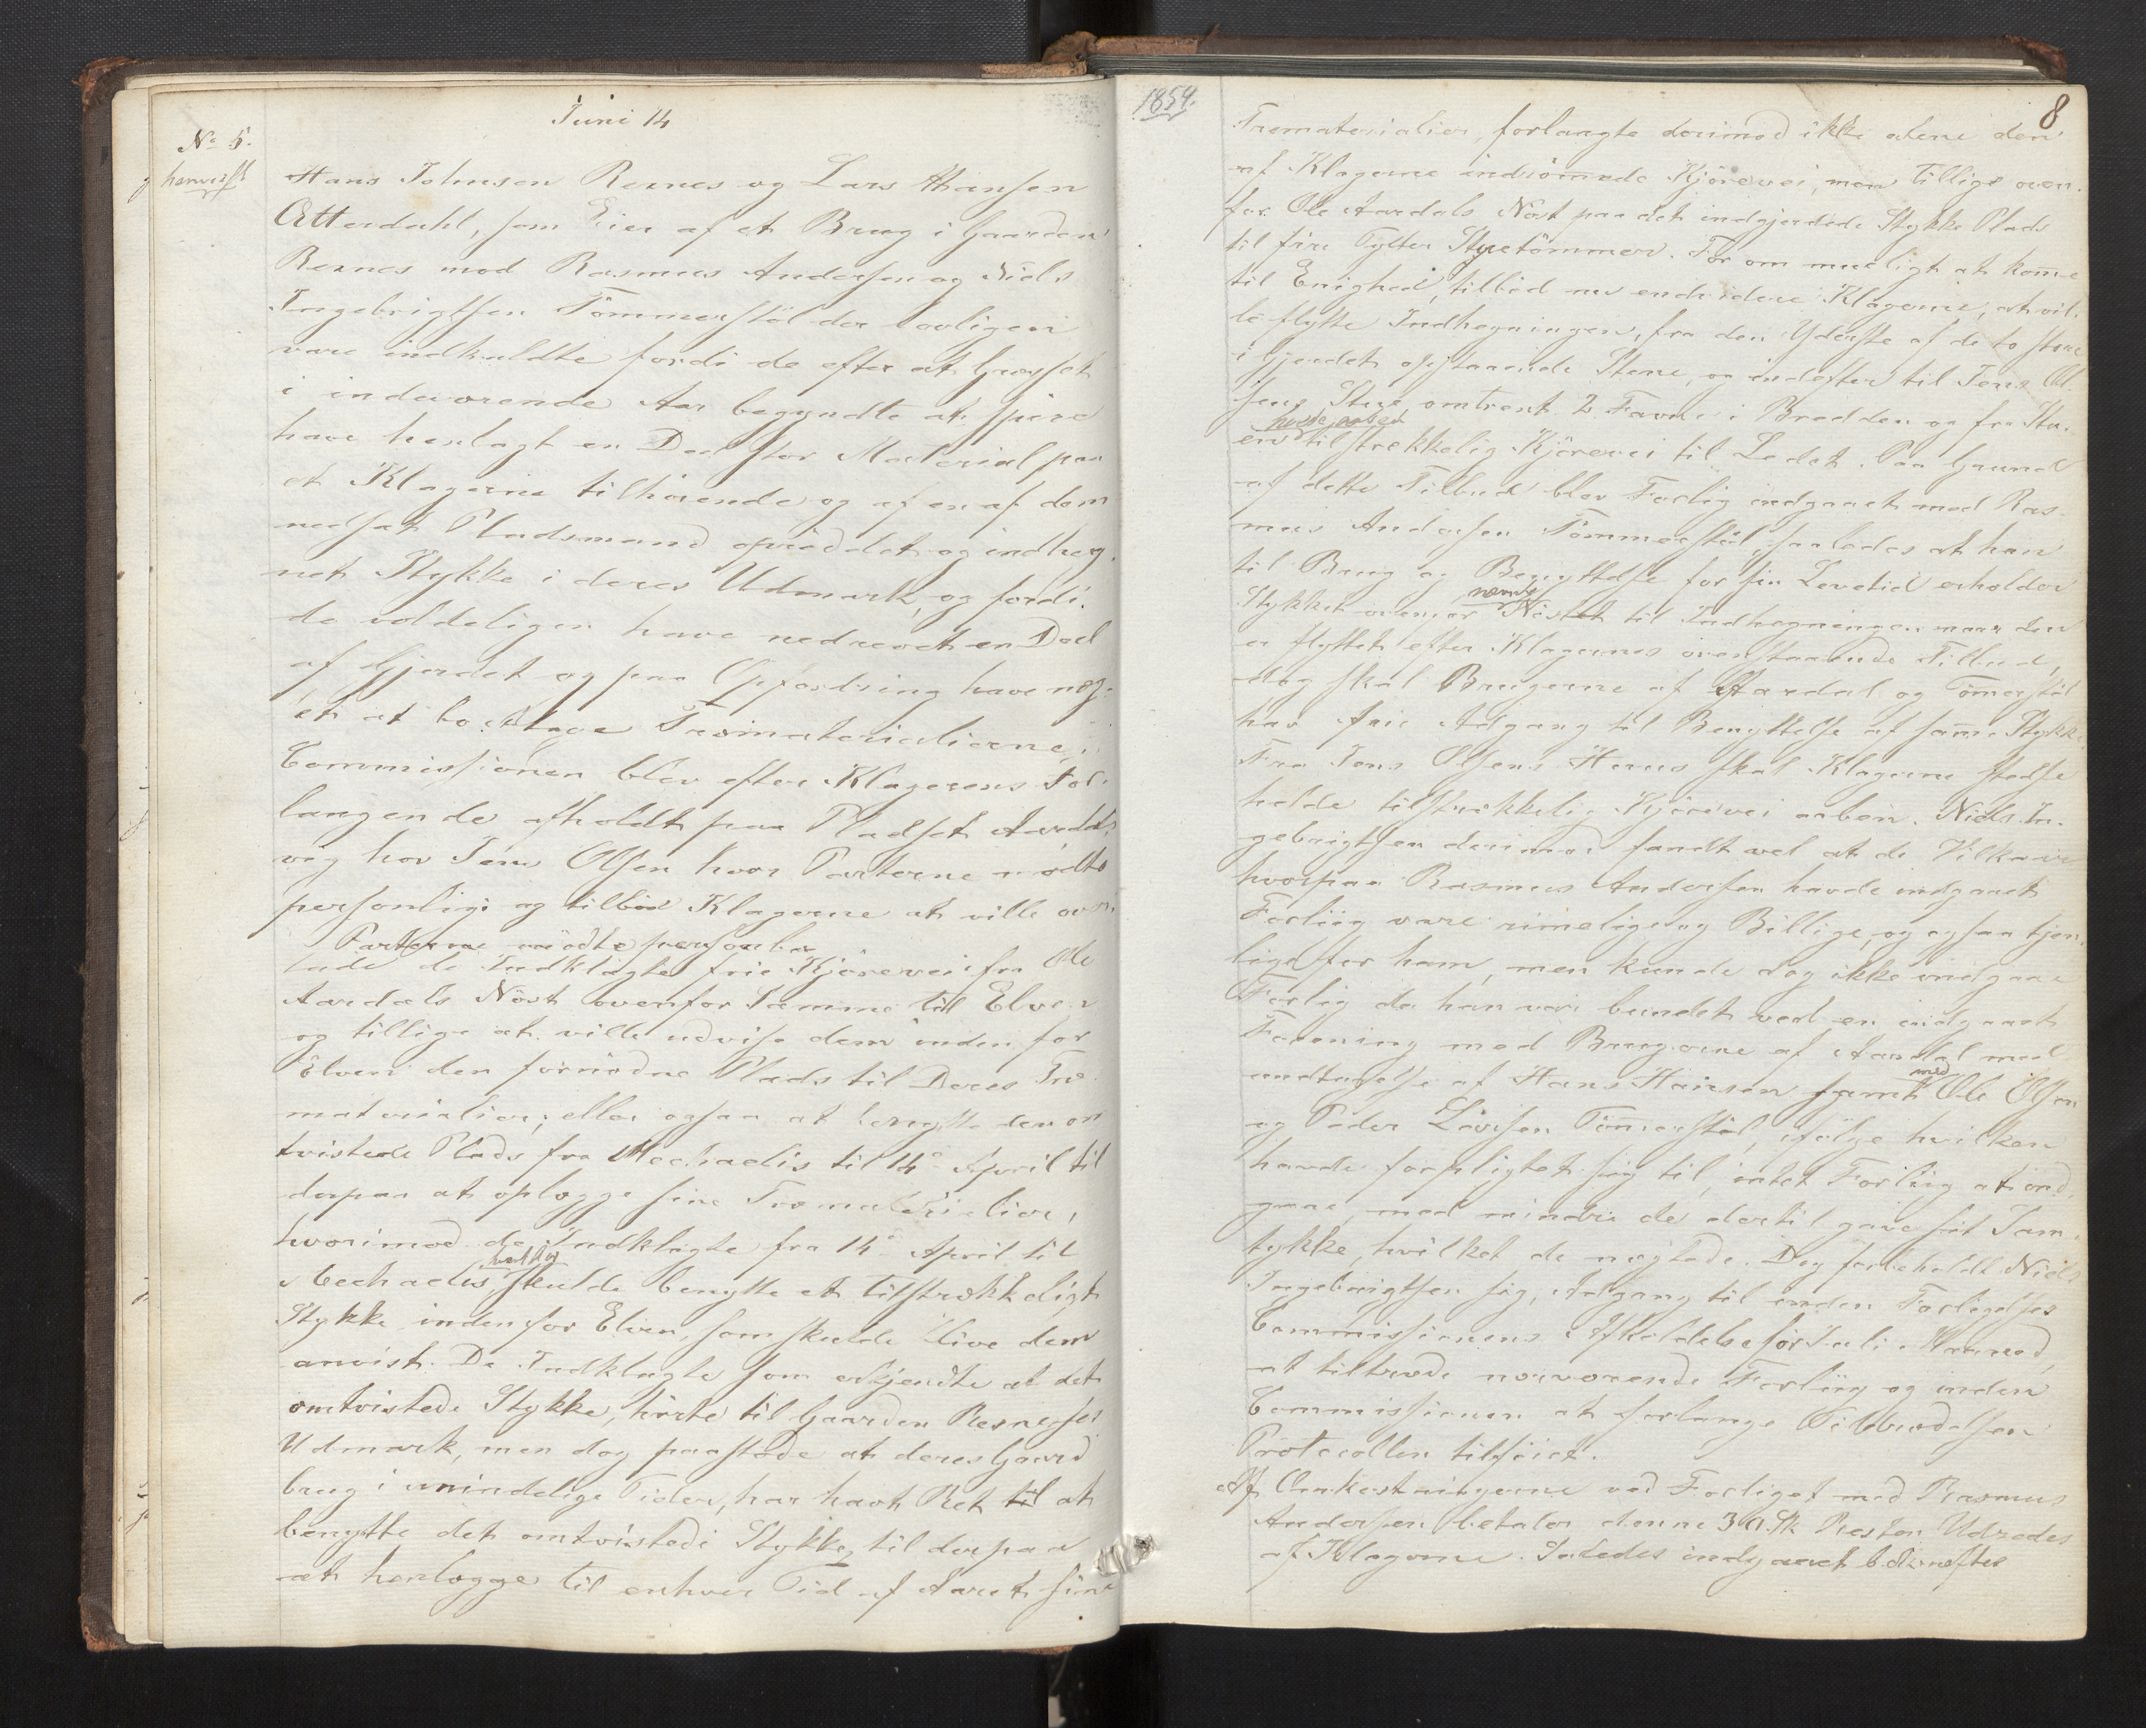 Juni 14
No 5.
henviist
Hans Johnsen Rexnes og Lars Hansen
Atterdahl, som Eier af et Brug i Gaarden
Rexnes mod Rasmus Andersen og Niels
Ingebrigtsen Tömmerstöl der lovligen
vare indkaldte fordi de efter at Græsset
i indeværende Aar begyndte at spire
have henlagt en Deel stor Material paa
et Klagerne tilhörende og af en af dem
nedsat Pladsmand opröddet og indheg-
net Stykke i deres Udmark, og fordi
de voldeligen have nedrevet en Deel
af Gjerdet og paa Opfordring have næg-
tet at borttage Træmaterialierne,
Commissionen blev efter Klagerens For-
langende afholdt paa Pladset Aardals-
vig hos Jens Olsen hvor Parterne mödte
personlig og tilböd Klagerne at ville over-
Parterne mödte personlig
lade de Indklagte frie Kjörevei fra Ole
Aardals Nöst ovenfor Samme til Elven
og tillige at ville udvise dem inden for
Elven den fornödne Plads til Deres Træ-
materialier; eller ogsaa at benytte den om
tvistede Plads fra Mechaelis til 14de April til
derpaa at oplægge sine Træmaterialier,
hvorimod de Indklagte fra 14de April til
Mechaelis skulde benytte et tilstrækkeligt
Stykke indenfor Elven, som skulde blive dem
anvist. De Indklagte som erkjendte at det
omtvistede Stykke, hörte til Gaarden Rexnes
Udmark, men dog paastode at deres Gaard
brug i umindelige Tider, har havt Ret til at
benytte det omtvistede Stykke, til derpaa
at henlægge til enhver Tid af Aaret sine
1859.
8
Træmaterialier, forlangte derimod ikke alene den
af Klagerne indrömmede Kjörevei, men tillige oven-
for Ole Aardals Nöst paa det indgjerdede Stykke Plads
til fire Tylter Styretömmer. For om mueligt at komme
til Enighed, tilböd nu endvidere Klagerne, at vil-
le flytte Indhegningen, fra den Yderste af de to store
i Gjerdet opstaaende Stene, og indefter til Jens Ol-
sens Stue omtrent 2 Favne i Bredden og fra Stu-
en tilstrekkelig Kjörevei til Ledet. Paa Grund
af dette Tilbud blev Forlig indgaaet med Ras-
mus Andersen Tömmerstöl, saaledes at han
til Brug og Benyttelse for sin Levetid erholder
nævnte
Stykket ovenfor Nöstet til Indhegningen naar den
er flyttet efter Klagernes ovenstaaende Tilbud,
dog skal Brugerne af Aardal og Tömerstöl
hav frie Adgang til Benyttelse af samme Stykke
Fra Jens Olsens Huus skal Klagerne stedse
holde tilstrækkelig Kjörevei aaben. Niels In-
gebrigtsen derimod fandt vel at de Vilkaar
hvorpaa Rasmus Andersen havde indgaaet
Forliig vare rimelige og Billige, og ogsaa tjen-
lige for ham, men kunde dog ikke indgaae
Forlig da han var bundet ved en indgaaet
Forening med Brugerne af Aardal med
med
undtagelse af Hans Hansen samt Ole Olsen
og Peder Larsen Tömmerstöl, ifölge hvilken
havde forpligtet sig til, intet Forliig at ind-
gaae, med mindre de dertil gave sit Sam-
tykke, hvilket de nægtede. Dog forbeholdt Niels
Ingebrigtsen sig, Adgang til inden Forligelses
Commissionens Afholdelse for Juli Maaned,
at tiltræde nærværende Forliig og inden
Commissionen at forlange Tiltrædelsen
Protocollen tilföiet.
Af Omkostningerne ved Forliget med Rasmus
Andersen betaler denne 30 Sk Resten Udredes
af Klagerne. Saaledes indgaaet bekræftes